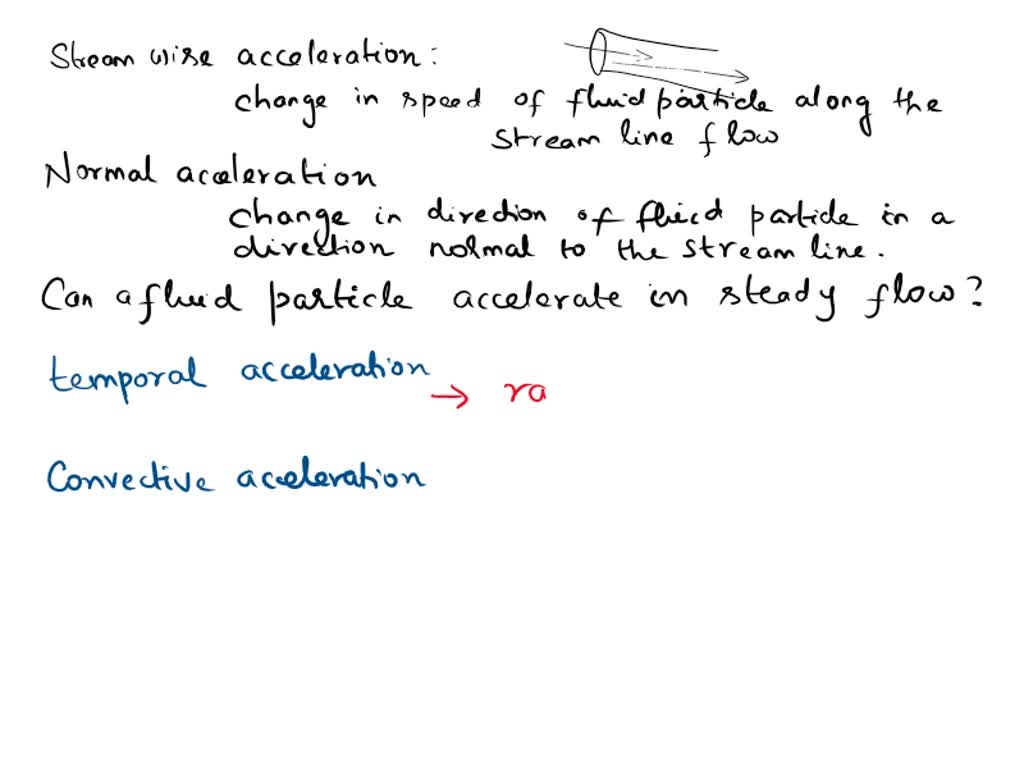 Stream wise acceleration:
change in speed of fluid particle along the
stream line flow
Normal acceleration
change in direction of fluid particle in a
direction normal to the stream line.
Can a fluid particle accelerate in steady flow?
temporal acceleration
→ ra
Convective acceleration